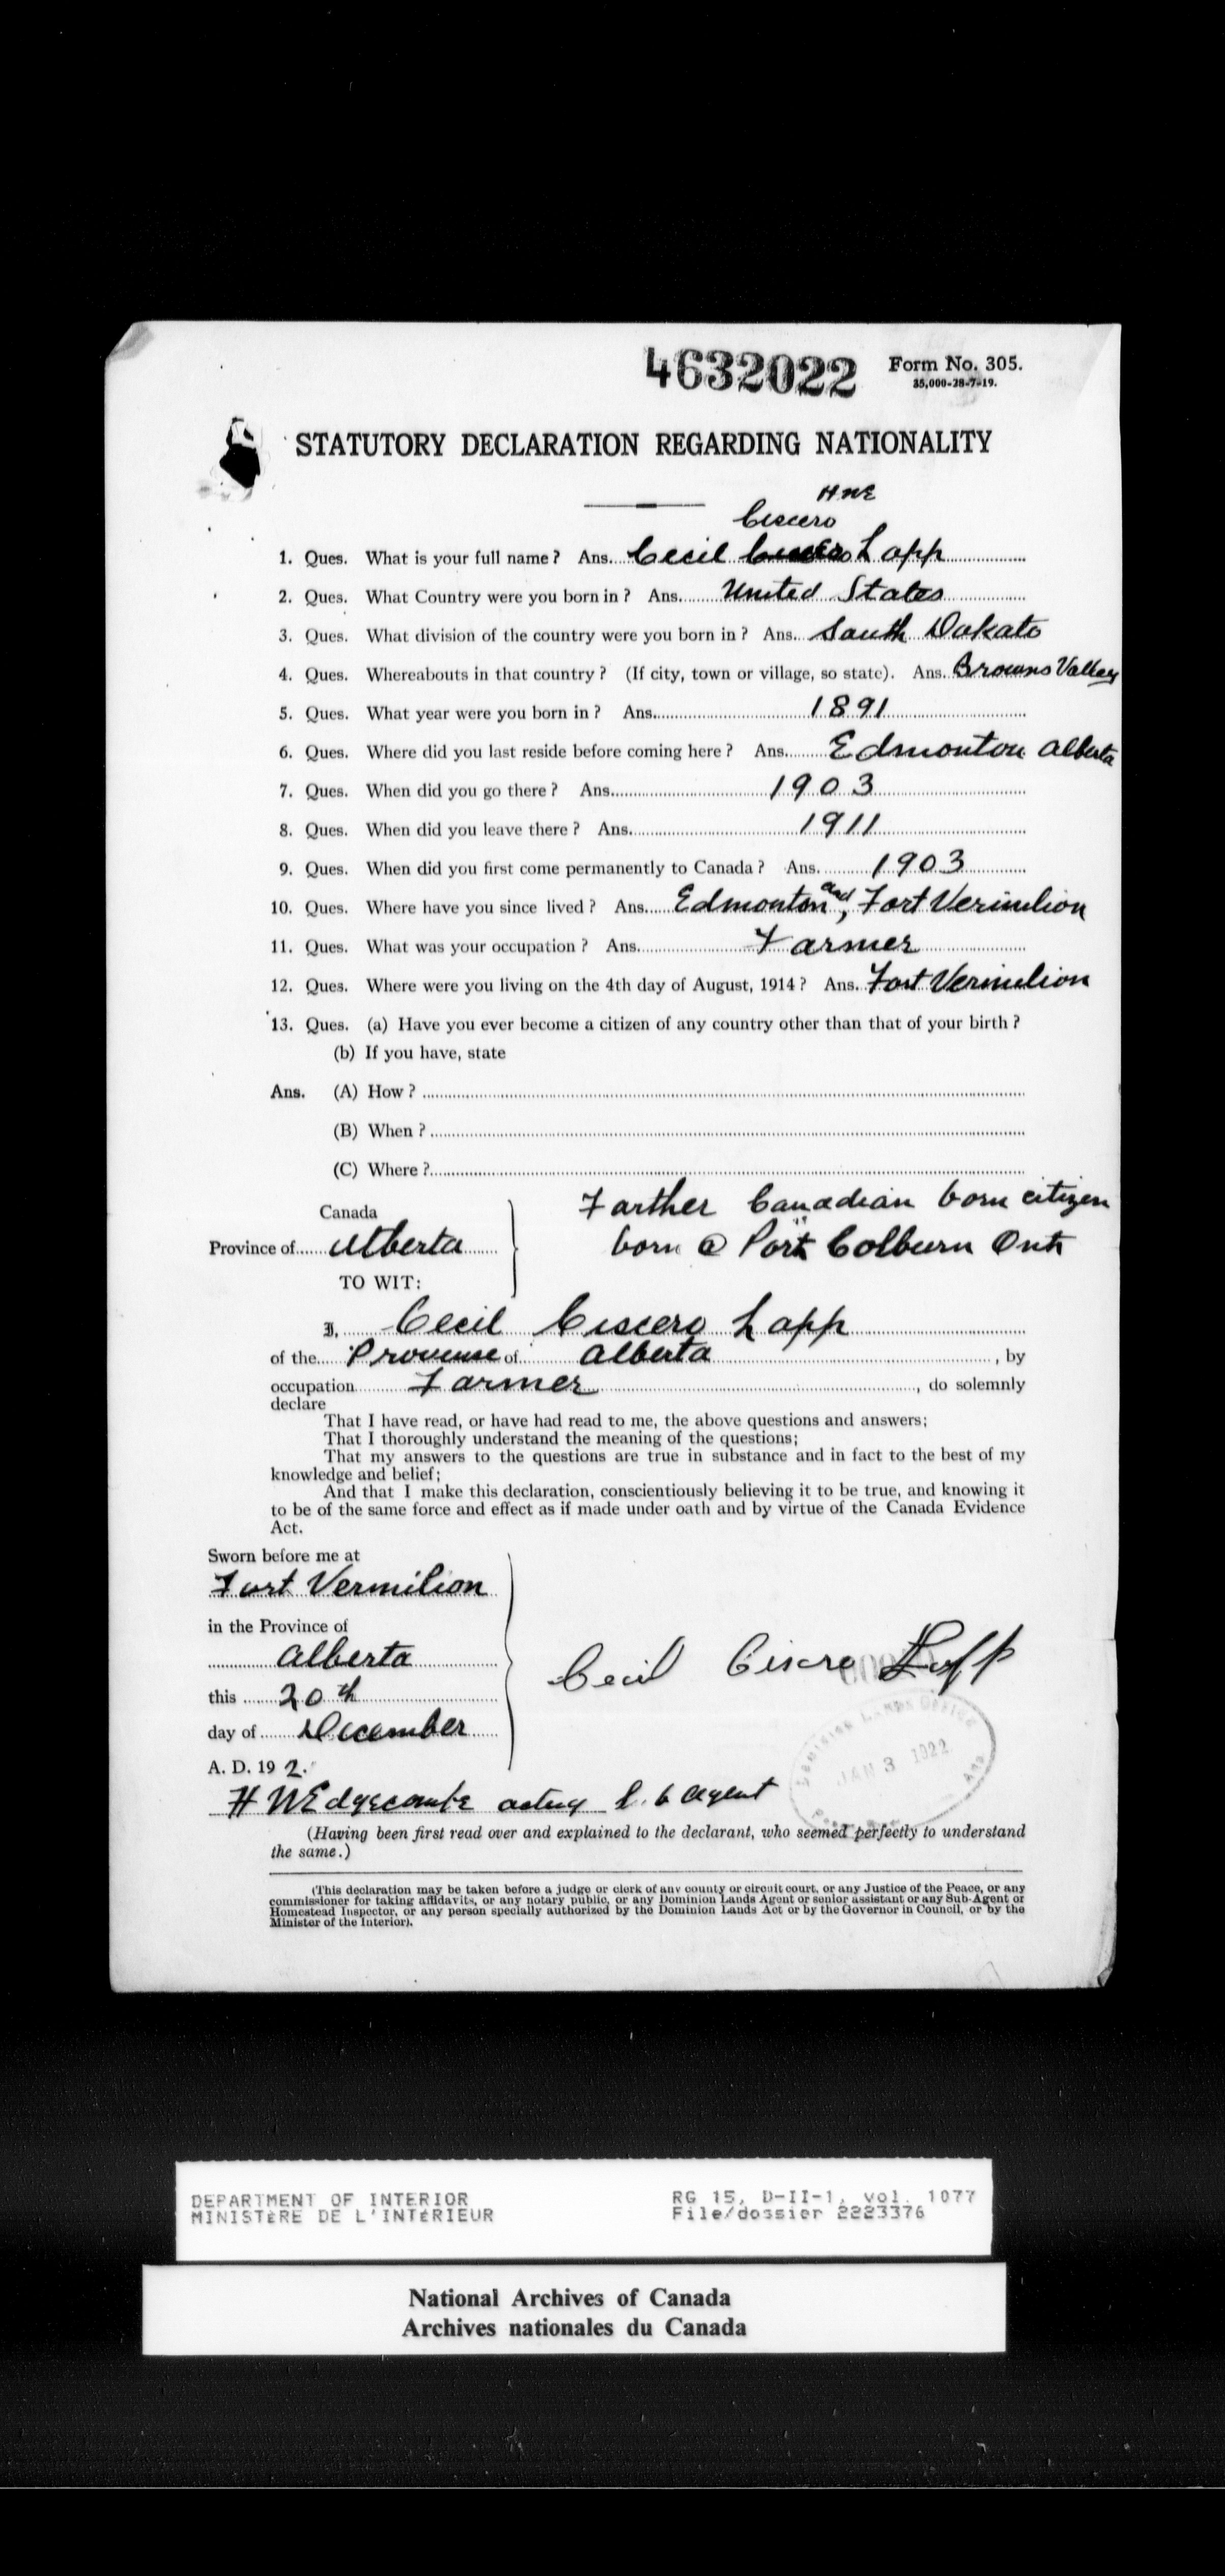 4632022
Form No. 305.
35,000-28-7-19.
STATUTORY DECLARATION REGARDING NATIONALITY
HNE
Ciscero
1. Ques. What is your full name? Ans. Cecil Lapp
2. Ques. What Country were you born in? Ans. United States
3. Ques. What division of the country were you born in? Ans. South Dakato
4. Ques. Whereabouts in that country? (If city, town or village, so state). Ans. Browns Valley
5. Ques. What year were you born in? Ans. 1891
6. Ques. Where did you last reside before coming here? Ans. Edmonton Alberta
7. Ques. When did you go there? Ans. 1903
8. Ques. When did you leave there? Ans. 1911
9. Ques. When did you first come permanently to Canada? Ans. 1903
10. Ques. Where have you since lived? Ans. Edmonton and, Fort Vermilion
11. Ques. What was your occupation? Ans. Farmer
12. Ques. Where were you living on the 4th day of August, 1914? Ans. Fort Vermilion
13. Ques. (a) Have you ever become a citizen of any country other than that of your birth?
(b) If you have, state
Ans. (A) How?
(B) When?
(C) Where?
Farther Canadian born citizen
Canada
Province of Alberta
born @ Port Colburn Ont
TO WIT:
I, Cecil Ciscero Lapp
of the Provinse of Alberta, by
occupation Farmer, do solemnly
declare
That I have read, or have had read to me, the above questions and answers;
That I thoroughly understand the meaning of the questions;
That my answers to the questions are true in substance and in fact to the best of my
knowledge and belief;
And that I make this declaration, conscientiously believing it to be true, and knowing it
to be of the same force and effect as if made under oath and by virtue of the Canada Evidence
Act.
Sworn before me at
Fort Vermilion
in the Province of
Alberta
Cecil Ciscro Lapp
this 20th
day of December
A. D. 192
DOMINION LANDS OFFICE
JAN 3 1922
H N Edgecombe acting agent
(Having been first read over and explained to the declarant, who seemed perfectly to understand
the same.)
(This declaration may be taken before a judge or clerk of any county or circuit court, or any Justice of the Peace, or any
commissioner for taking affidavits, or any notary public, or any Dominion Lands Agent or senior assistant or any Sub-Agent or
Homestead Inspector, or any person specially authorized by the Dominion Lands Act or by the Governor in Council, or by the
Minister of the Interior).
DEPARTMENT OF INTERIOR
MINISTÈRE DE L'INTÉRIEUR
RG 15, D-II-1, vol. 1077
File/dossier 2223376
National Archives of Canada
Archives nationales du Canada